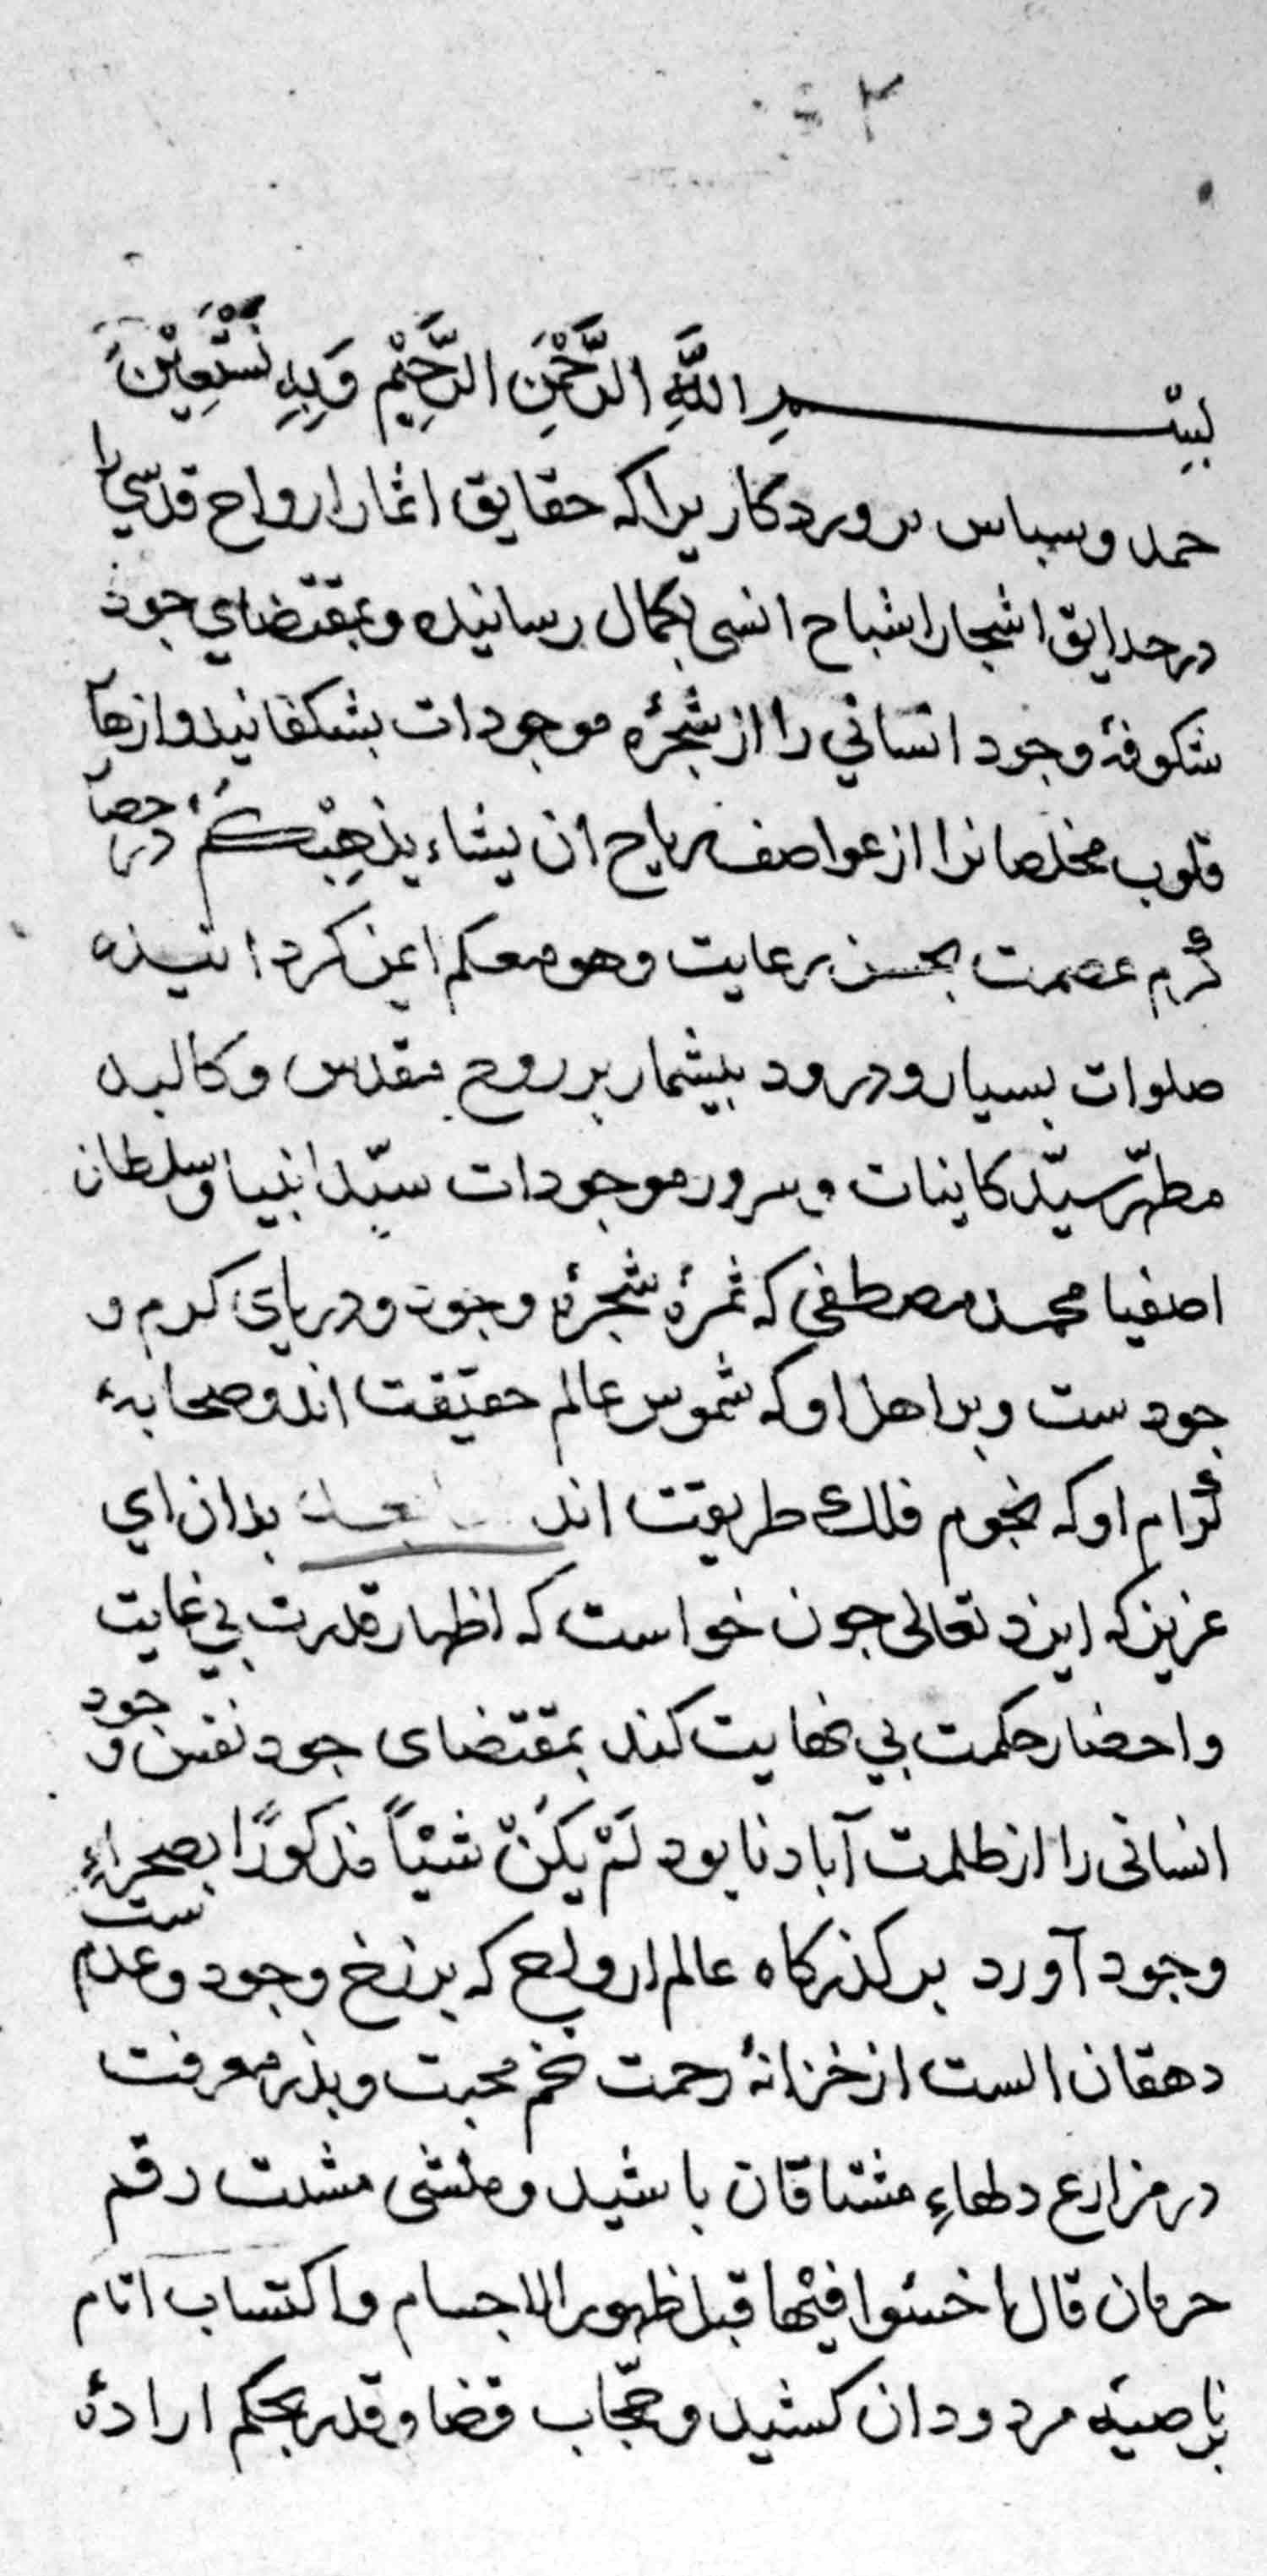 ۲
بِسْمِ اللَّهِ الرَّحْمَنِ الرَّحِيْمِ وَبِهِ نَسْتَعِيْنَ
حمد و سباس بروردكاريرا كه حقايق اثمار ارواح قدسي را
در حدايق اشجار اشباح انسى بكمال رسانيده و بمقتضاي جود
شكوفهٔ وجود انساني را از شجرهٔ موجودات بشكفانيد و ازها
قلوب مخلصانرا از عواصف رياح ان يشاء يذهِبْكُم در حصا
كرم عصمت بحسن رعايت وهو معكم ايمن كردانيذه
صلوات بسيار و درود بيشمار بر روح مقدس و كالبد
مطهّر سيّد كاينات و سرور موجودات سيّد انبيا و سلطان
اصفيا محمد مصطفى كه ثمرهٔ شجرهٔ وجود و درياي كرم و
جودست و بر اهل او كه شموس عالم حقيقت اند و صحابهٔ
كرام او كه نجوم فلك طريقت اند بذان اي
عزيز كه ايزد تعالى جون خواست كه اظهار قدرت بي غايت
و احضار حكمت بي نهايت كند بمقتضاى جود نفس و خود
انسانى را از ظلمت آباد نابود لَمْ يَكُنْ شَيْئًا مذكورًا بصحراءِ
وجود آورد بر كذركاه عالم ارواح كه برزخ وجود و عدم ست
دهقان الست از خزانهٔ رحمت تخم محبت و بذر معرفت
در مزارع دلهاءِ مشتاقان باشيد و منشى مشيت رقم
حرمان قال اخسئوا فيْها قبل ظهور الاجسام و اكتساب اثام
بر ناصيهٔ مردودان كشيد و حجّاب قضا و قدر بحكم ارادهٔ